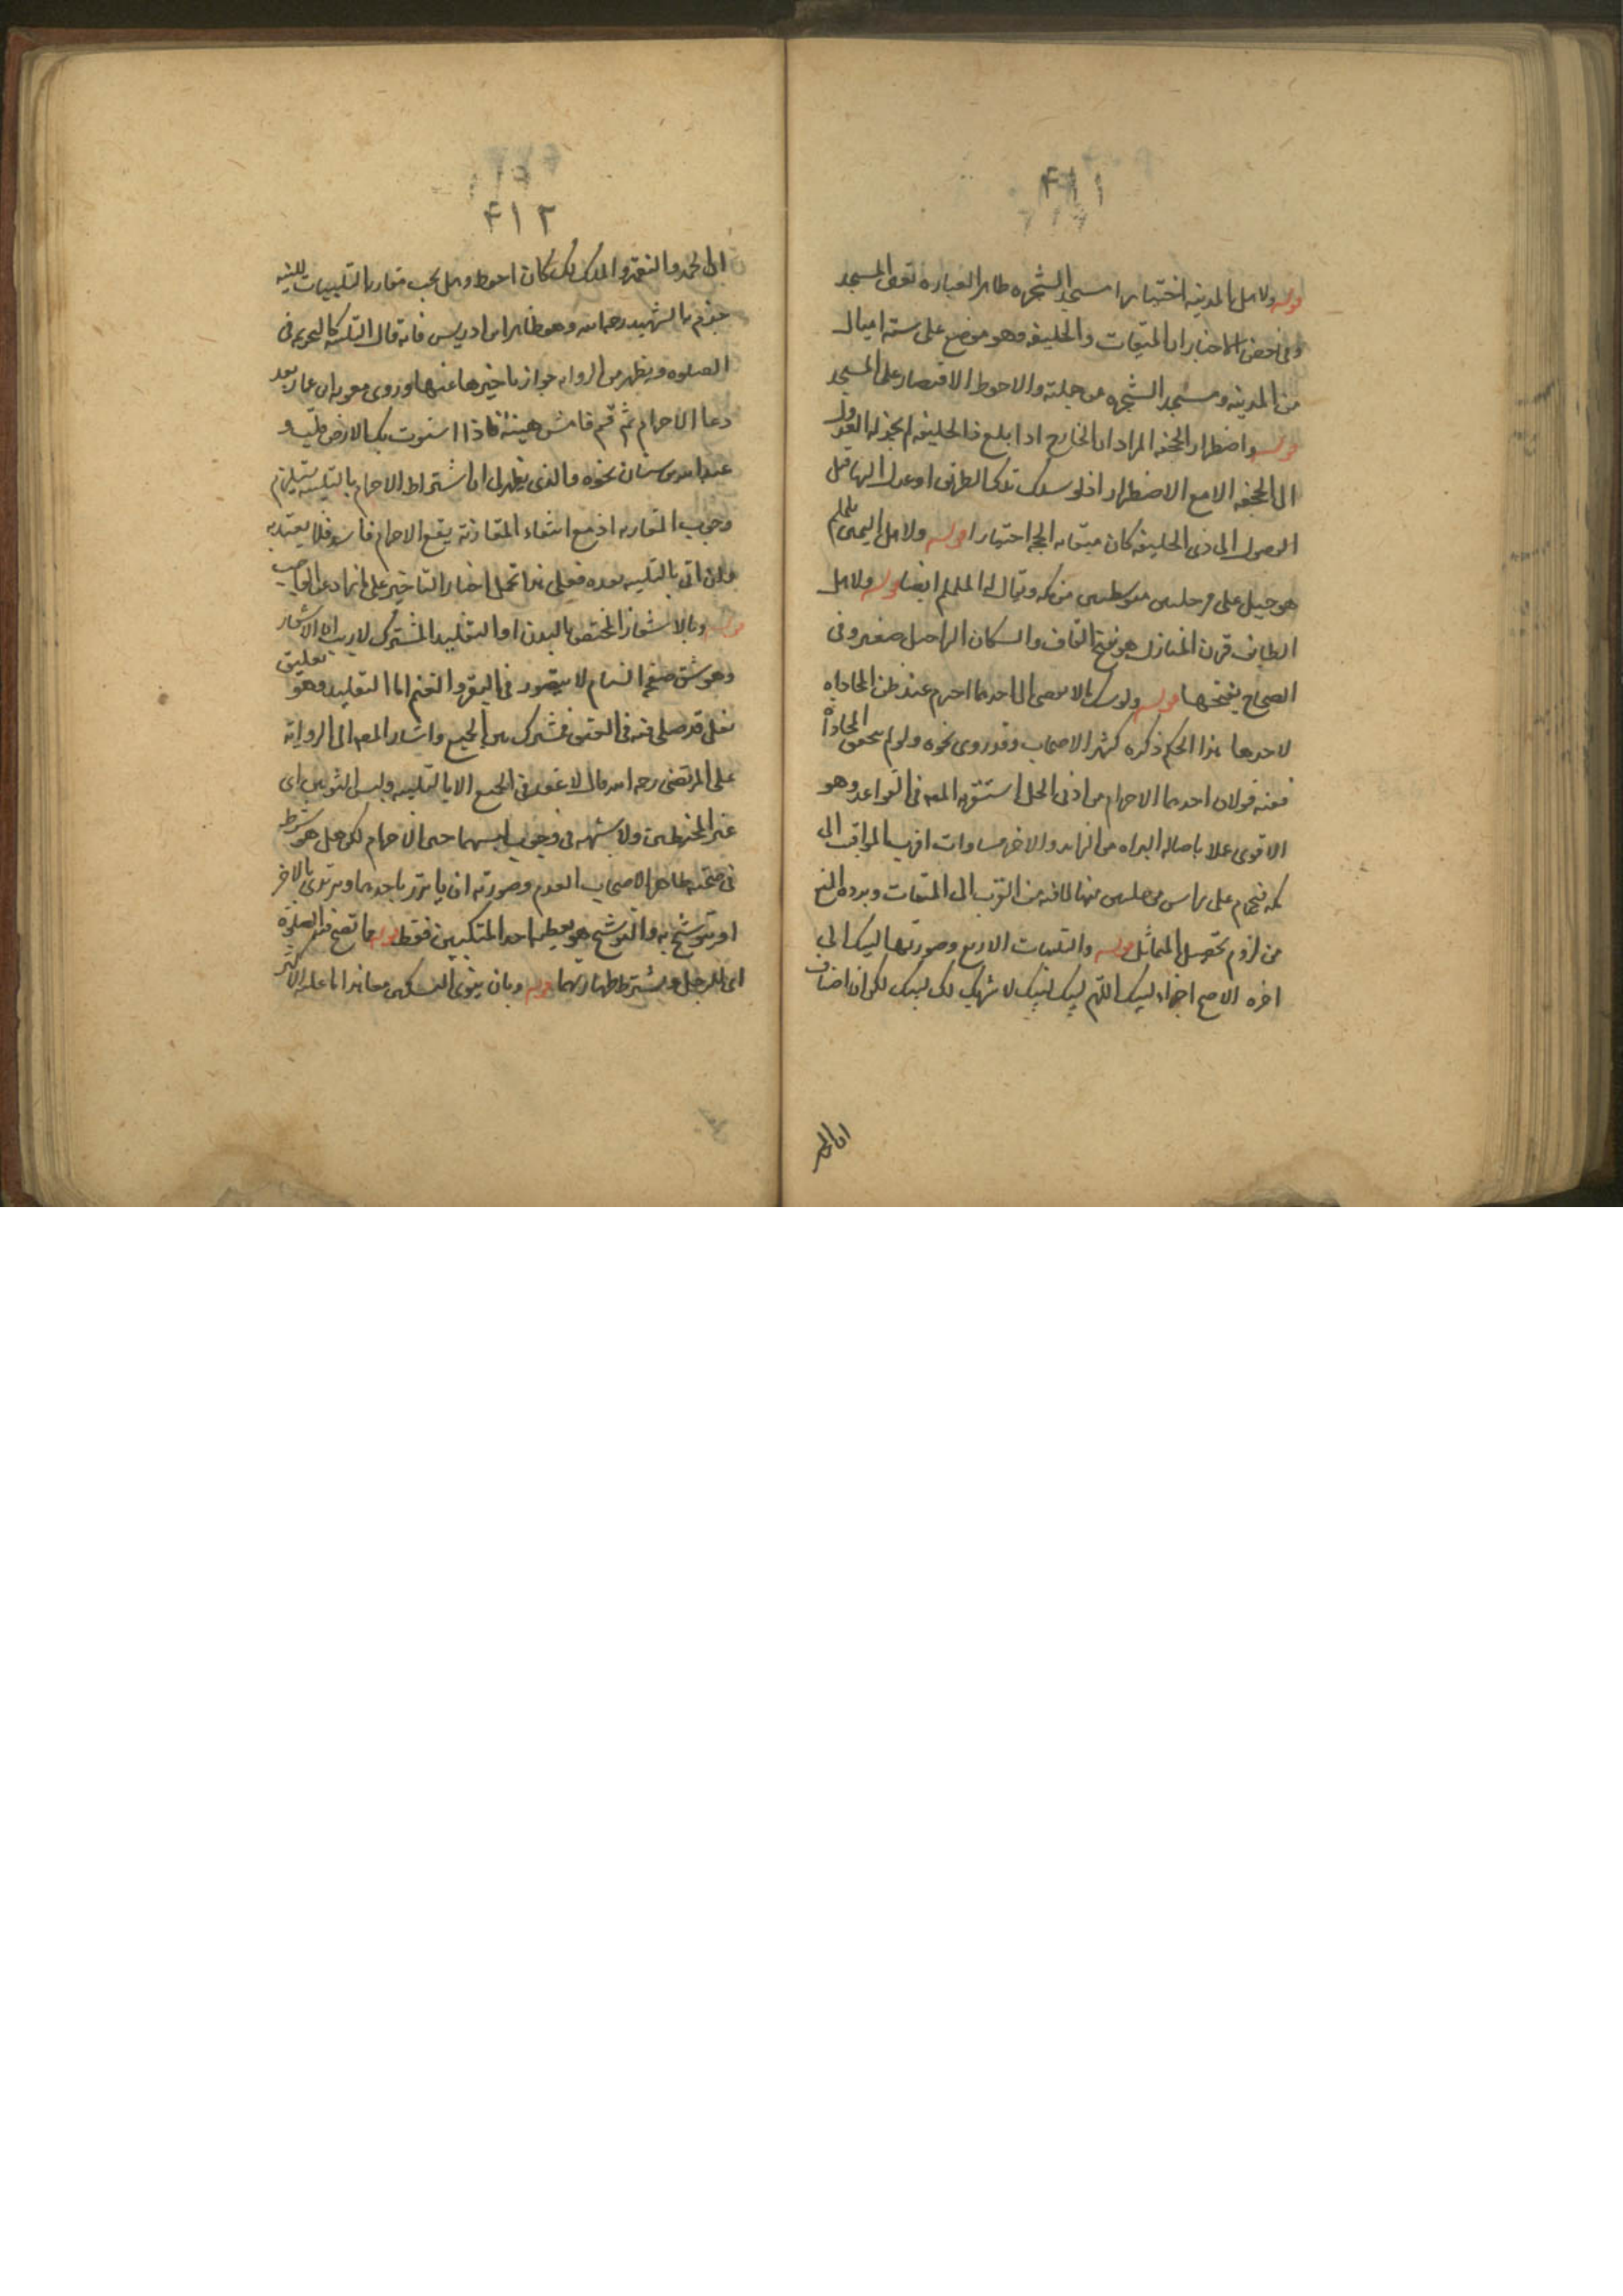 ۴۱۱
قوله ولاهل المدينه اختيارا مسجد الشجره ظاهر العباره تعين المسجد
وفى بعض الاخبار ان الميقات ذو الحليفه وهو موضع على ستة اميال
من المدينه ومسجد الشجره من جملته والاحوط الاقتصار على المسجد
قوله واضطرارا الجحفه المراد ان الخارج اذا بلغ ذا الحليفه لم يجز له العدول
الى الجحفه الا مع الاضطرار اذ لو سلك تلك الطريق او عدل اليها قبل
الوصول الى ذى الحليفه كان ميقاته الجحفه اختيارا قوله ولاهل اليمن يلملم
هو جبل على مرحلتين من مكه ويقال له الملم ايضا قوله ولاهل
الطايف قرن المنازل هو بفتح القاف واسكان الراء جبل صغير وفى
الصحاح بفتحها قوله ولو سلك ما لا يفضى الى احدهما احرم عند ظن المحاذاه
لاحدها هذا الحكم ذكره كثير الاصحاب وقد روى نحوه ولو لم يتحقق المحاذاة
ففيه قولان احدهما الاحرام من ادنى الحل استقربه المصـ فى القواعد وهو
الاقوى عملا باصاله البراه من الزايد والاخر مساوات اقرب المواقيت الى
مكه فيحرم على راس مرحلتين منها لانه من القرب الى الميقات ويرده المنع
من لزوم تحصيل المماثل قوله والتلبيات الاربع وصورتها لبيك الى
اخره الاصح اجزاء لبيك اللهم لبيك لبيك لا شريك لك لبيك لكن ان اضاف
ان الحمد
۴۱۲
ان الحمد والنعمة والملك لك كان احوط وهل يجب مقارنة التلبيات للنيه
جزم به الشهيد رحمه الله وهو ظاهر ابن ادريس فانه قال التلبيه كالتحريمه فى
الصلوه ويظهر من الروايه جواز تاخيرها عنها وروى معويه ابن عمار بعد
دعا الاحرام ثم قم فامش هنيئة فاذا استوت بك الارض فلبّ و
عبد الله بن سنان نحوه والذى يظهر ان اشتراط الاحرام بالتلبيه يستلزم
وجوب المقارنه اذ مع انتفاء المقارنة يقع الاحرام فاسدا فلا يعتد به
وان اتى بالتلبيه بعده فعلى هذا تحمل اخبار التاخير على
قوله وبالاشعار المختص بالبدن او التقليد المشترك لا ريب ان الاشعار
وهو شق صفحه السنام لا يتصور فى البقر والغنم اما التقليد وهو تعليق
نعل قد صلى فيه فى العنق فمشترك بين الجميع واشار المصـ الى الرواية
على المرتضى رحمه الله قال لا عقد فى الجميع الا بالتلبيه ولبس الثوبين اى
غير المخيطين ولا شبهه فى وجوب لبسهما حين الاحرام لكن هل هو شرط
فى صحته ظاهر الاصحاب العدم وصورته ان ياتزر باحدهما ويرتدى بالاخر
او يتوشح به والتوشح هو تغطيه احد المنكبين فقط قوله مما تصح فيه الصلوة
اى للرجل ويشترط طهارتهما قوله وبان ينوى النسكين معا هذا ما عليه الاكثر